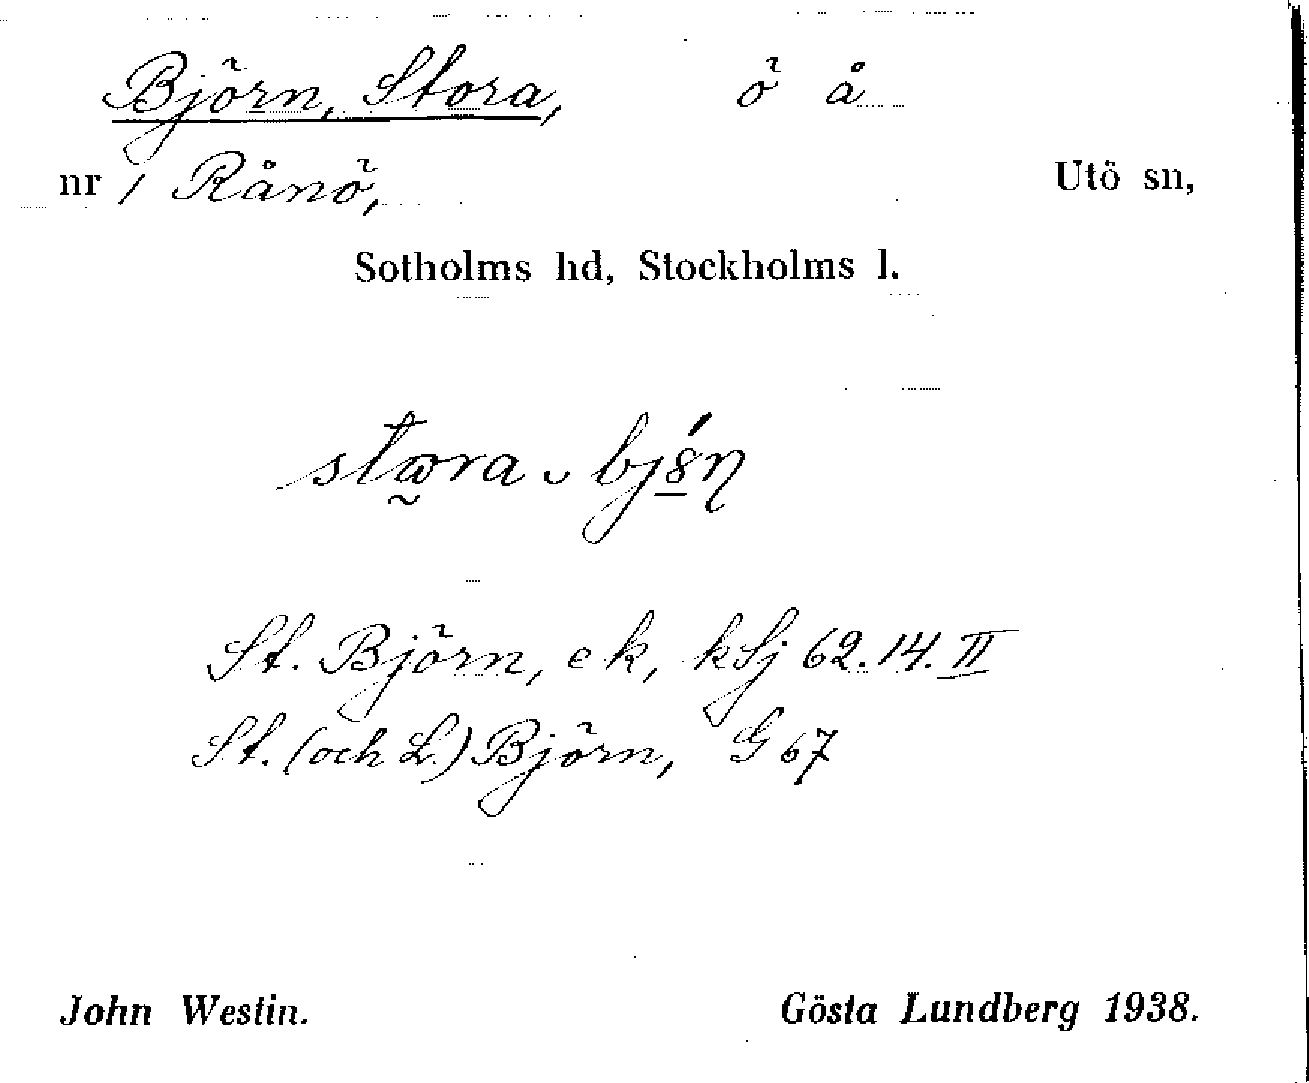 Björn, Stora, ö å
nr 1 Rånö, Utö sn,
Sotholms hd, Stockholms l.
St. Björn, ek, kSj 62.14.II
St. (och L.) Björn, G 67
John Westin. Gösta Lundberg 1938.